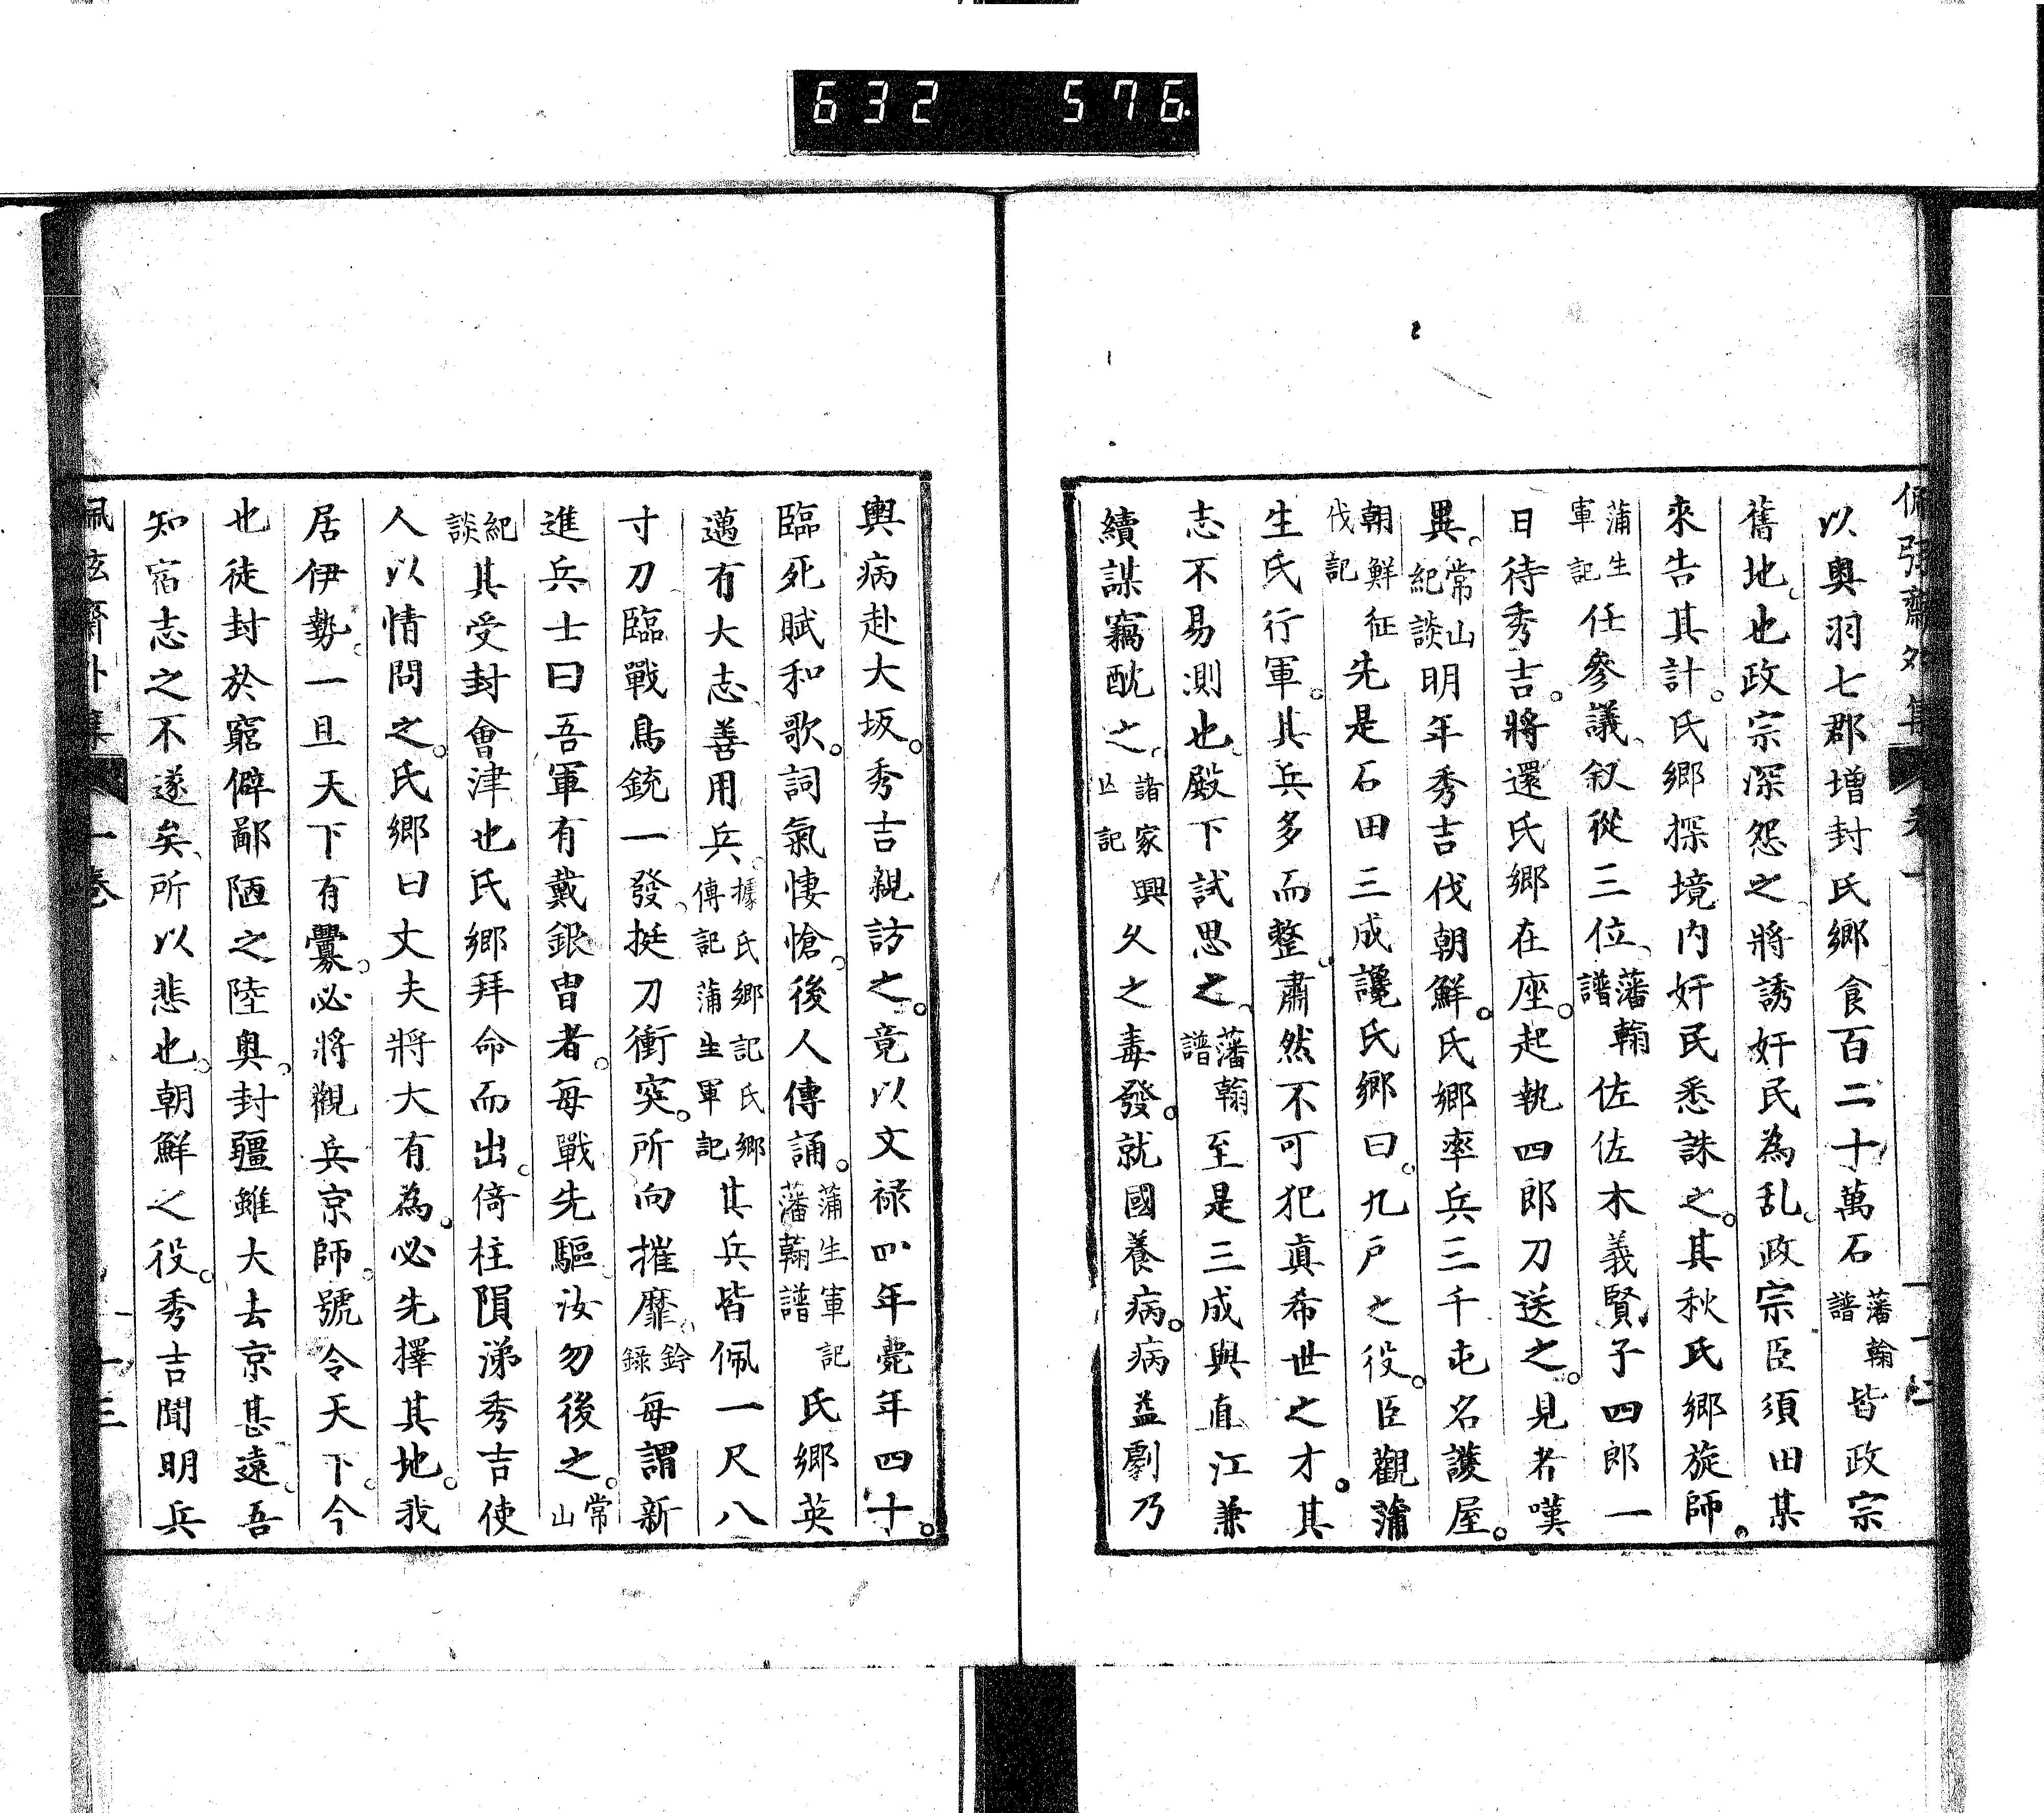 632 576
以奥羽七郡増封氏郷食百二十萬石藩翰譜皆政宗
舊地也政宗深怨之將誘奸民為乱政宗臣須田某
來告其計。氏郷探境内奸民悉誅之。其秋氏郷旋師。
蒲生軍記任參議叙從三位藩翰譜佐佐木義賢子四郎一
日待秀吉。將還氏郷在座。起執四郎刀送之。見者嘆
異。常山紀談明年秀吉伐朝鮮。氏郷率兵三千屯名護屋。
朝鮮征伐記先是石田三成讒氏郷曰。九戸之役。臣觀蒲
生氏行軍。其兵多而整。肅然不可犯真希世之才。其
志不易測也。殿下試思之藩翰譜至是三成與直江兼
續謀竊酖之。諸家興亡記久之毒發。就國養病。病益劇乃
輿病赴大坂。秀吉親訪之。竟以文禄四年薨年四十。
臨死賦和歌。詞氣悽愴。後人傳誦。蒲生軍記藩翰譜氏郷英
邁有大志善用兵。據氏郷記氏郷傳記蒲生軍記其兵皆佩一尺八
寸刀臨戰鳥銃一發。挺刀衝突。所向摧靡。鈐録毎謂新
進兵士曰吾軍有戴銀冑者。毎戰先驅汝勿後之。常山
紀談其受封會津也氏郷拜命而出。倚柱隕涕秀吉使
人以情問之。氏郷曰丈夫將大有為。必先擇其地。我
居伊勢。一旦天下有釁。必將觀兵京師。號令天下。今
也徒封於窮僻鄙陋之陸奥。封疆雖大去京甚遠。吾
知宿志之不遂矣。所以悲也。朝鮮之役。秀吉聞明兵
佩弦齋外集 一巻 十三